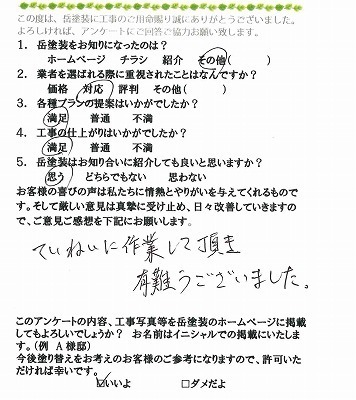 この度は、岳塗装に工事のご用命賜り誠にありがとうございました。
よろしければ、アンケートにご回答ご協力お願い致します。
1. 岳塗装をお知りになったのは?
ホームページ チラシ 紹介 その他( )
2. 業者を選ばれる際に重視されたことはなんですか?
価格 対応 評判 その他( )
3. 各種プランの提案はいかがでしたか?
満足 普通 不満
4. 工事の仕上がりはいかがでしたか?
満足 普通 不満
5. 岳塗装はお知り合いに紹介しても良いと思いますか?
思う どちらでもない 思わない
お客様の喜びの声は私たちに情熱とやりがいを与えてくれるものです。そして厳しい意見は真摯に受け止め、日々改善していきますので、ご意見ご感想を下記にお願いします。
ていねいに作業して頂き
有難うございました。
このアンケートの内容、工事写真等を岳塗装のホームページに掲載
してもよろしいでしょうか? お名前はイニシャルでの掲載にいたし
ます。(例 A 様邸)
今後塗り替えをお考えのお客様のご参考になりますので、許可いた
だければ幸いです。
☑いいよ □ダメだよ